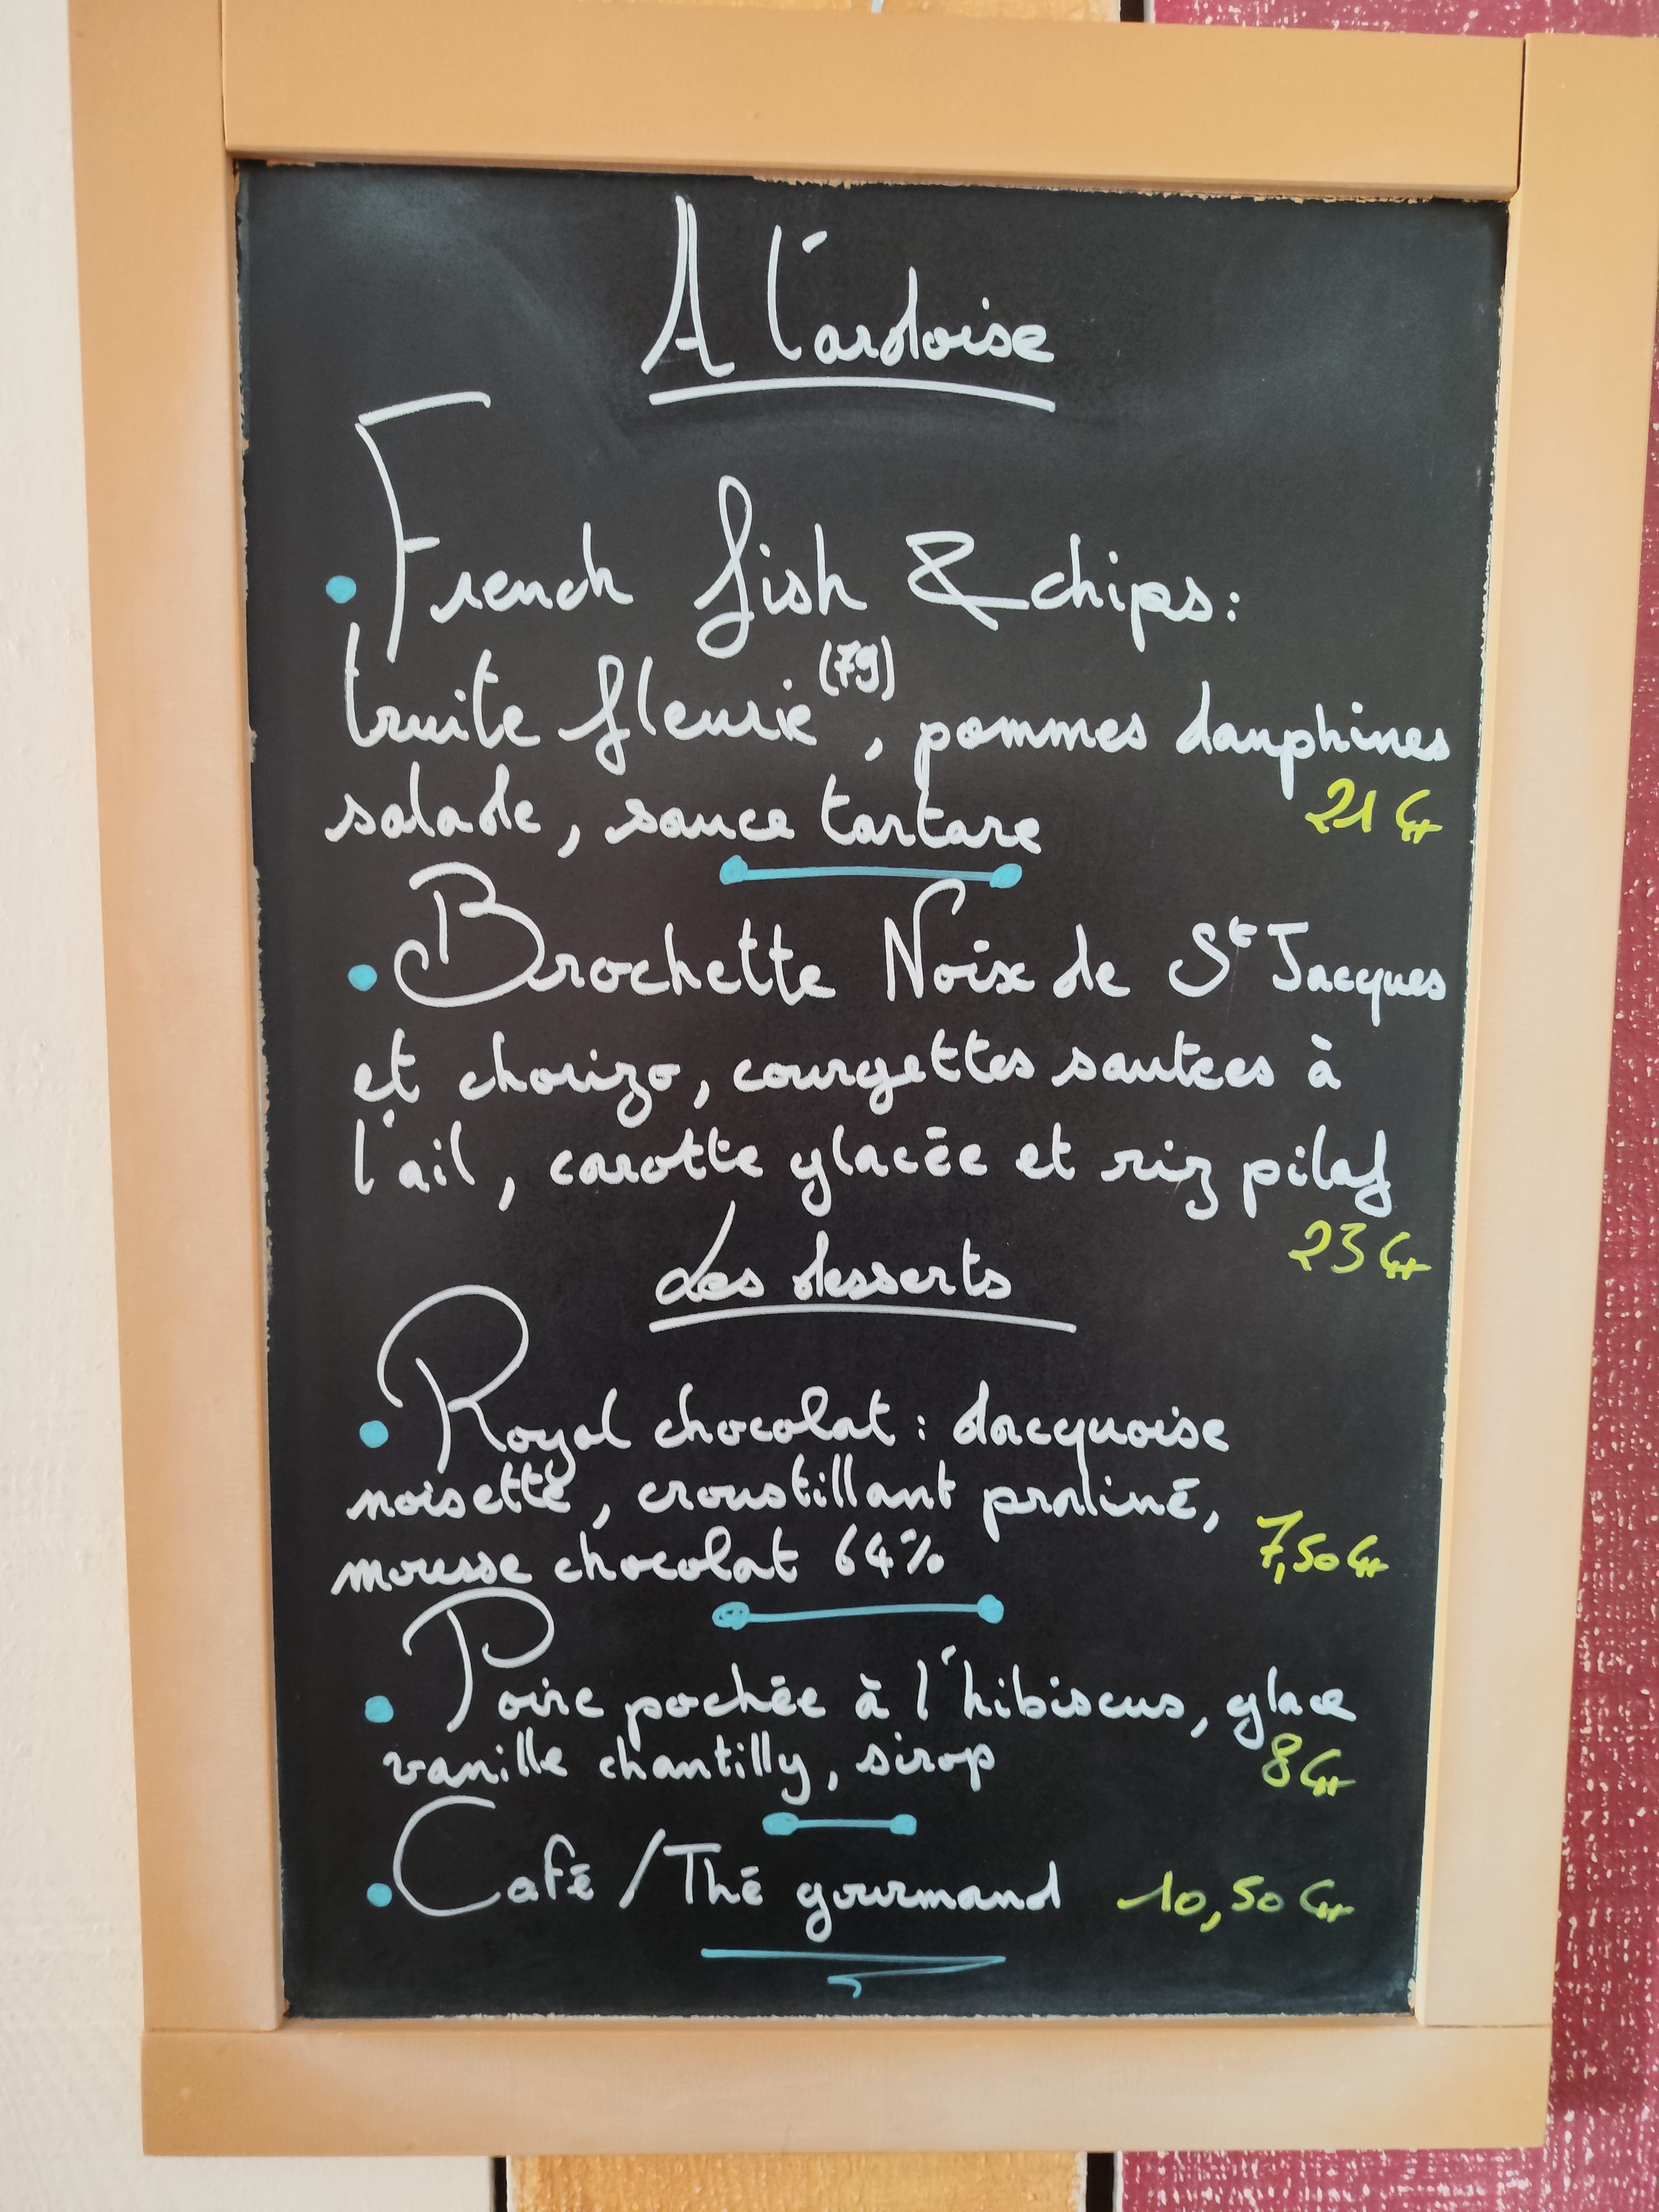 A l'ardoise
• French fish & chips :
truite fleurie (79), pommes dauphines
salade, sauce tartare 21 €
• Brochette Noix de St Jacques
et chorizo, courgettes sautées à
l'ail, carotte glacée et riz pilaf
23 €
Les desserts
• Royal chocolat : dacquoise
noisette, croustillant praliné,
mousse chocolat 64% 7,50 €
• Poire pochée à l'hibiscus, glace
vanille chantilly, sirop 8 €
• Café / Thé gourmand 10,50 €